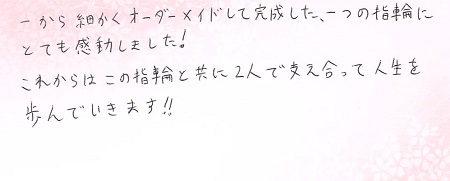 一から細かくオーダーメイドして完成した、一つの指輪に
とても感動しました!
これからはこの指輪と共に2人で支え合って人生を
歩んでいきます!!